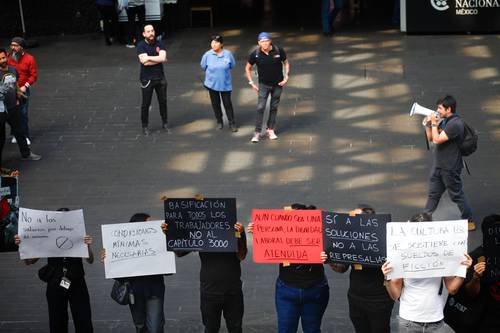 NACIONAL
MÉXICO
No a los
CONDICIONES
MÍNIMAS
NECESARIAS
BASIFICACIÓN
PARA TODOS LOS
TRABAJADORES
NO AL
CAPÍTULO 3000
AUN CUANDO SEA UNA
PERSONA, LA DIGNIDAD
LABORAL DEBE SER
ATENDIDA
SÍ A LAS
SOLUCIONES
NO A LAS
REPRESALIAS
LA CULTURA NO
SE SOSTIENE CON
SUELDOS DE
FICCIÓN